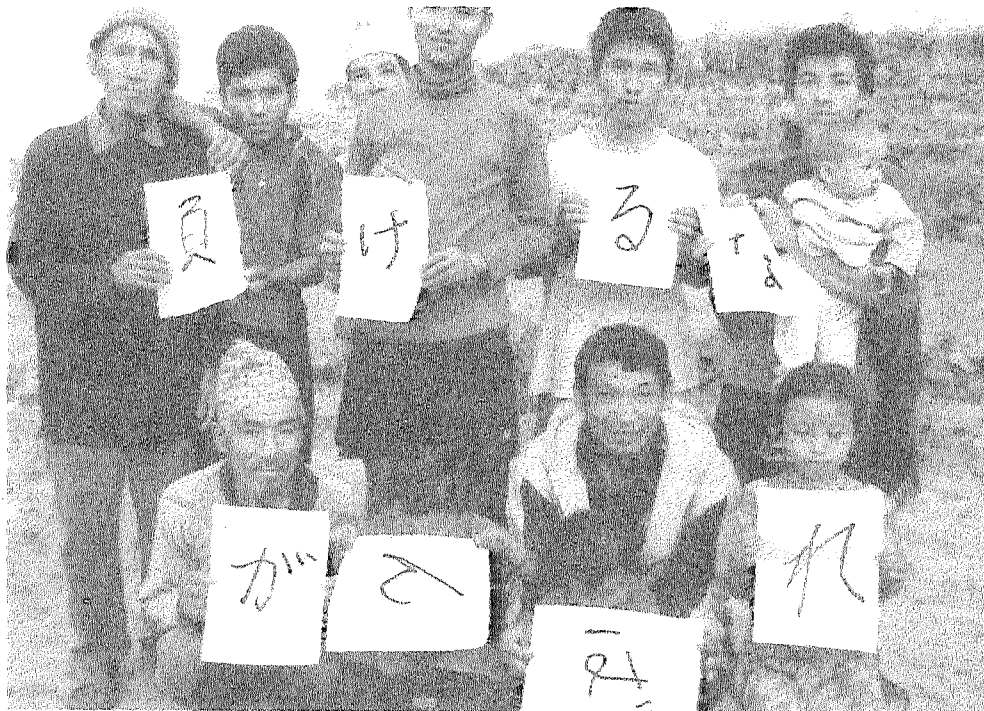 負けるな
がんばれ